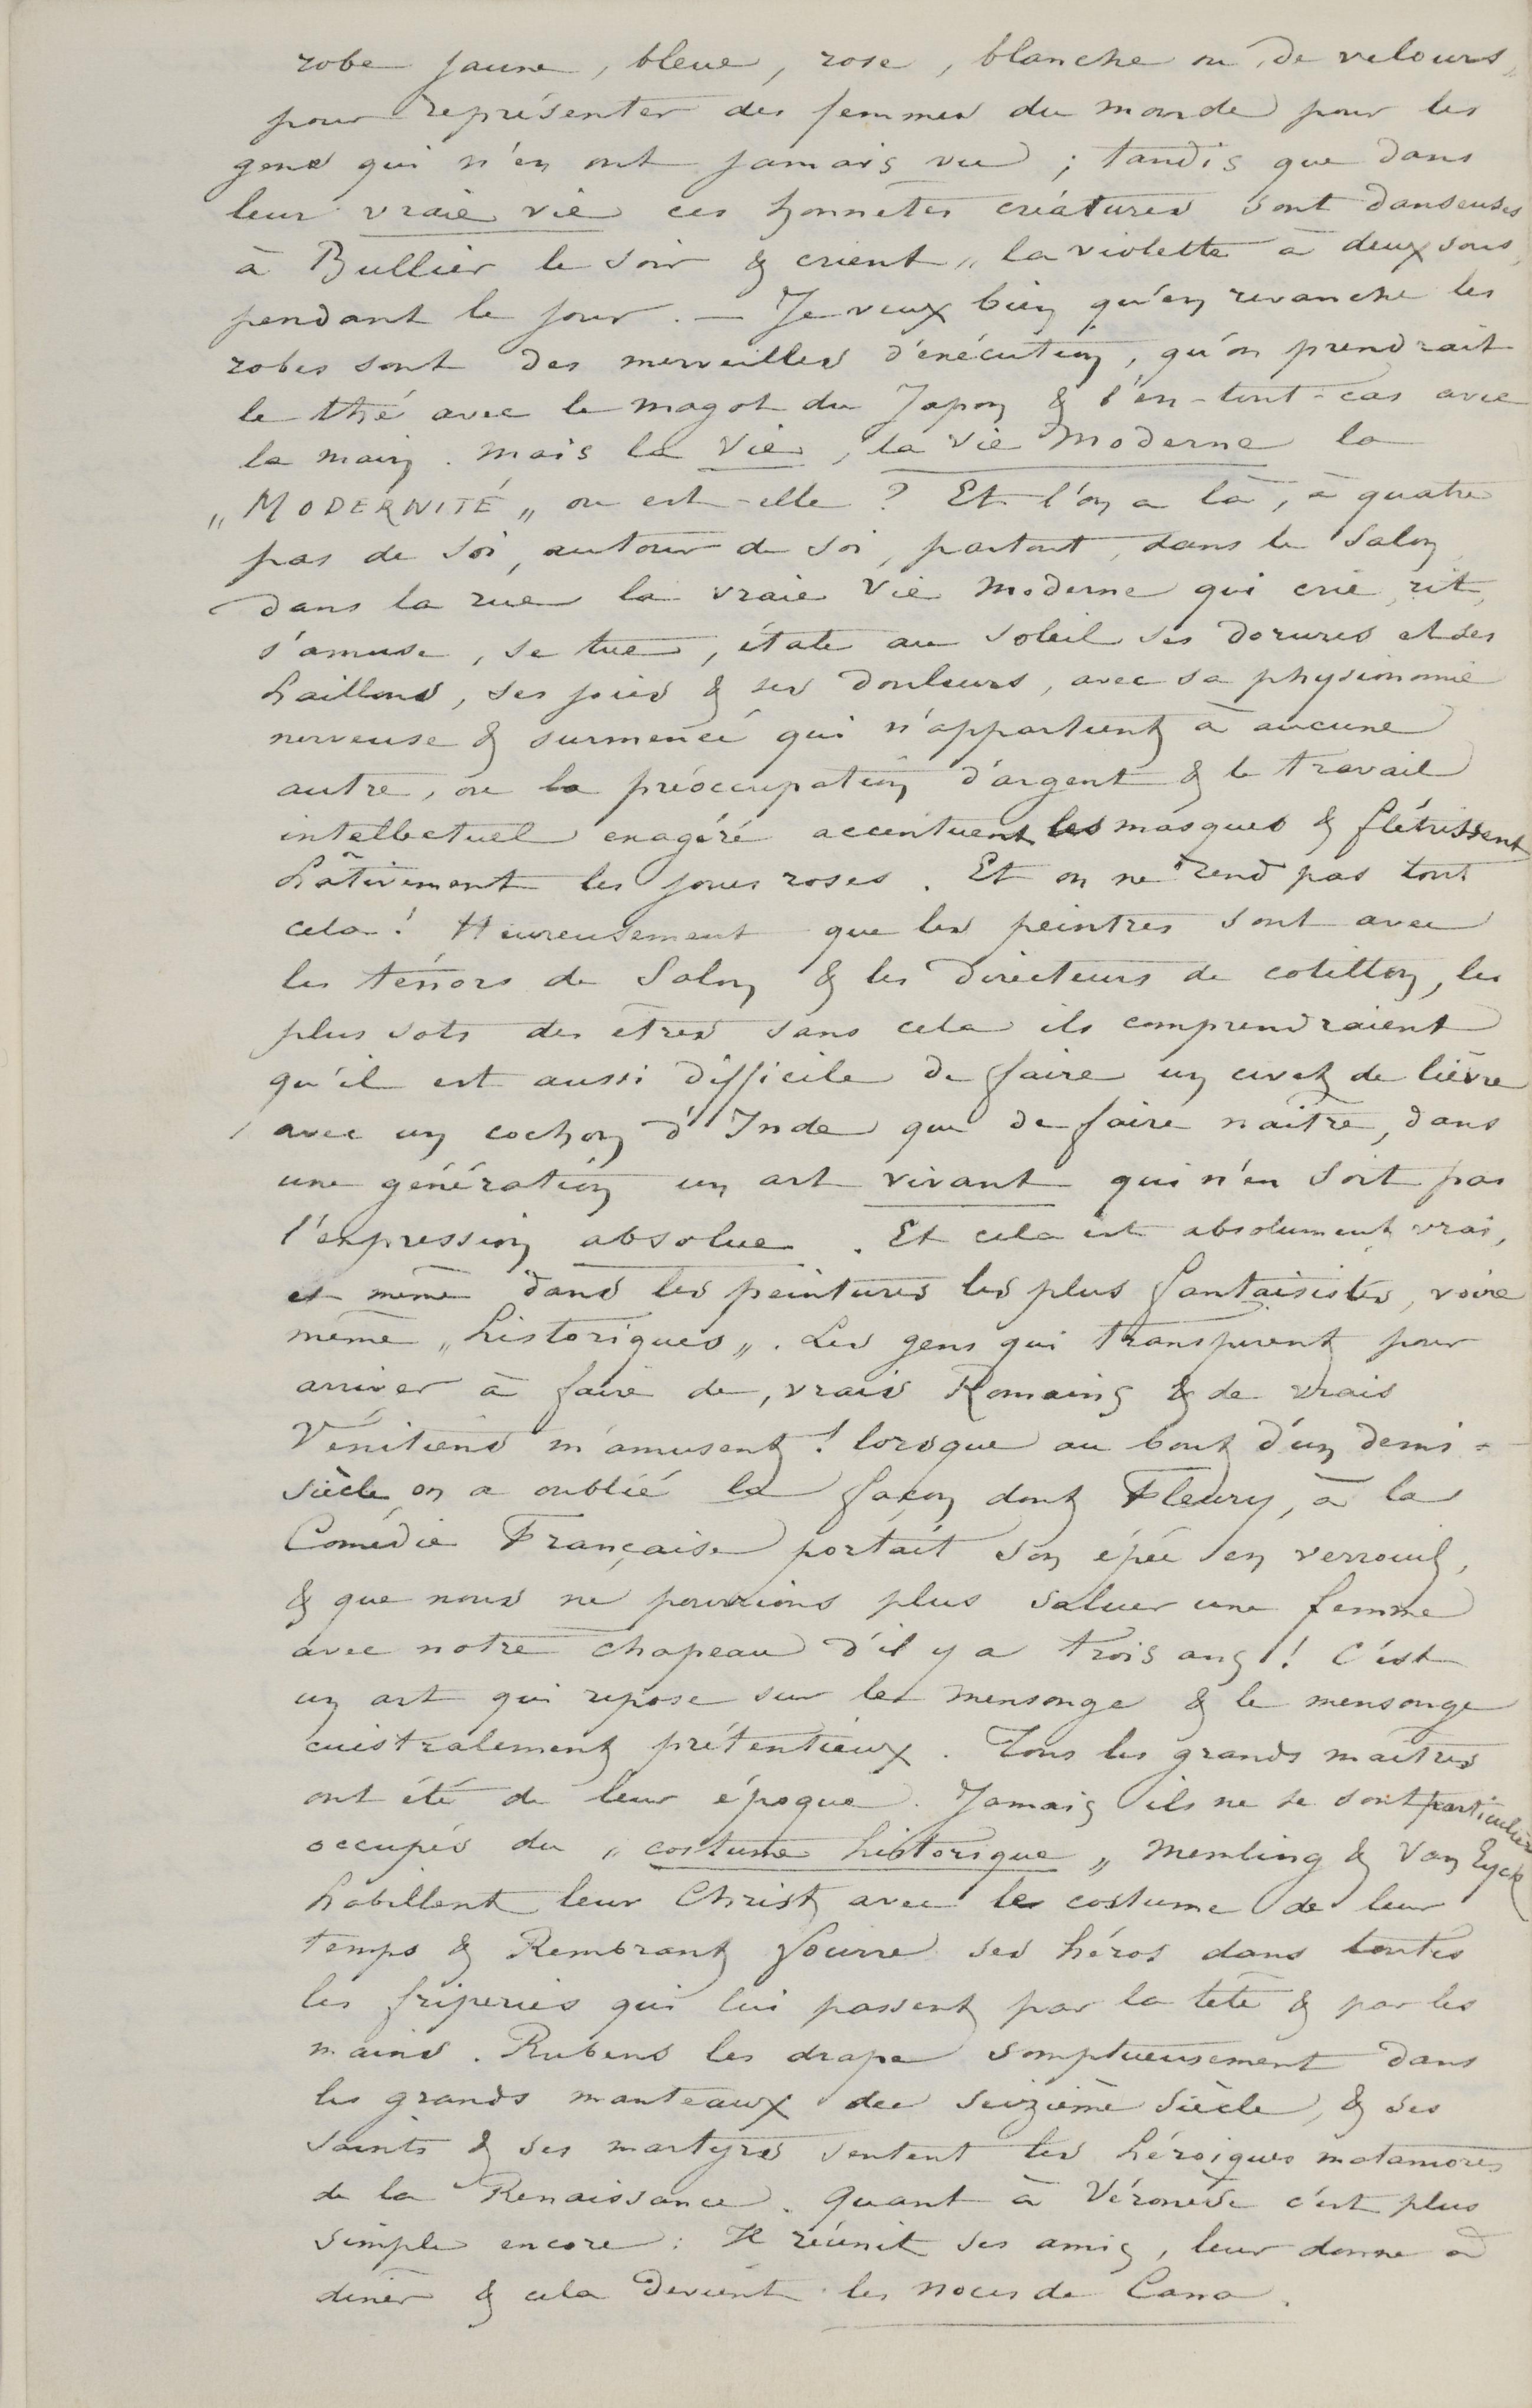 robe jaune, bleue, rose, blanche ou de velours,
pour représenter des femmes du monde pour les
gens qui n'en ont jamais vu ; tandis que dans
leur vraie vie ces honnêtes créatures sont danseuses
à Bullier le soir & crient „ la violette à deux sous,
pendant le jour. — Je veux bien qu'en revanche les
robes sont des merveilles d'exécution, qu'on prendrait
le thé avec le magot du Japon & l'en-tout-cas avec
la main. Mais la Vie, la Vie Moderne la
„ MODERNITÉ „ ou est-elle ? Et l'on a là, à quatre
pas de soi, autour de soi, partout, dans le Salon,
dans la rue la vraie Vie Moderne qui crie, rit,
s'amuse, se tue, étale au soleil ses dorures et ses
haillons, ses joies & ses douleurs, avec sa physionomie
nerveuse & surmenée qui n'appartient à aucune
autre, ou la préoccupation d'argent & le travail
intellectuel exagéré accentuent les masques & flétrissent
hâtivement les joues roses. Et on ne rend pas tout
cela ! Heureusement que les peintres sont avec
les ténors de Salon & les directeurs de cotillon, les
plus sots des êtres sans cela ils comprendraient
qu'il est aussi difficile de faire un civet de lièvre
avec un cochon d'Inde que de faire naître, dans
une génération un art vivant qui n'en soit pas
l'expression absolue. Et cela est absolument vrai,
et même dans les peintures les plus fantaisistes, voire
même „ historiques „. Les gens qui transpirent pour
arriver à faire de vrais Romains & de vrais
Vénitiens m'amusent ! lorsque au bout d'un demi-
siècle on a oublié la façon dont Fleury, à la
Comédie Française portait son épée en verrouil,
& que nous ne pourrions plus saluer une femme
avec notre chapeau d'il y a trois ans ! C'est
un art qui repose sur le mensonge & le mensonge
cuistralement prétentieux. Tous les grands maîtres
ont été de leur époque. Jamais ils ne se sont particulièr
occupés du „ costume historique „ Memling & Van Eyck
habillent leur Christ avec le costume de leur
temps & Rembrant fourre ses héros dans toutes
les friperies qui lui passent par la tête & par les
mains. Rubens les drape somptueusement dans
les grands manteaux du seizième siècle, & ses
saints & ses martyrs sentent les héroïques matamores
de la Renaissance. Quant à Véronèse c'est plus
simple encore : Il réunit ses amis, leur donne à
dîner & cela devient les noces de Cana.